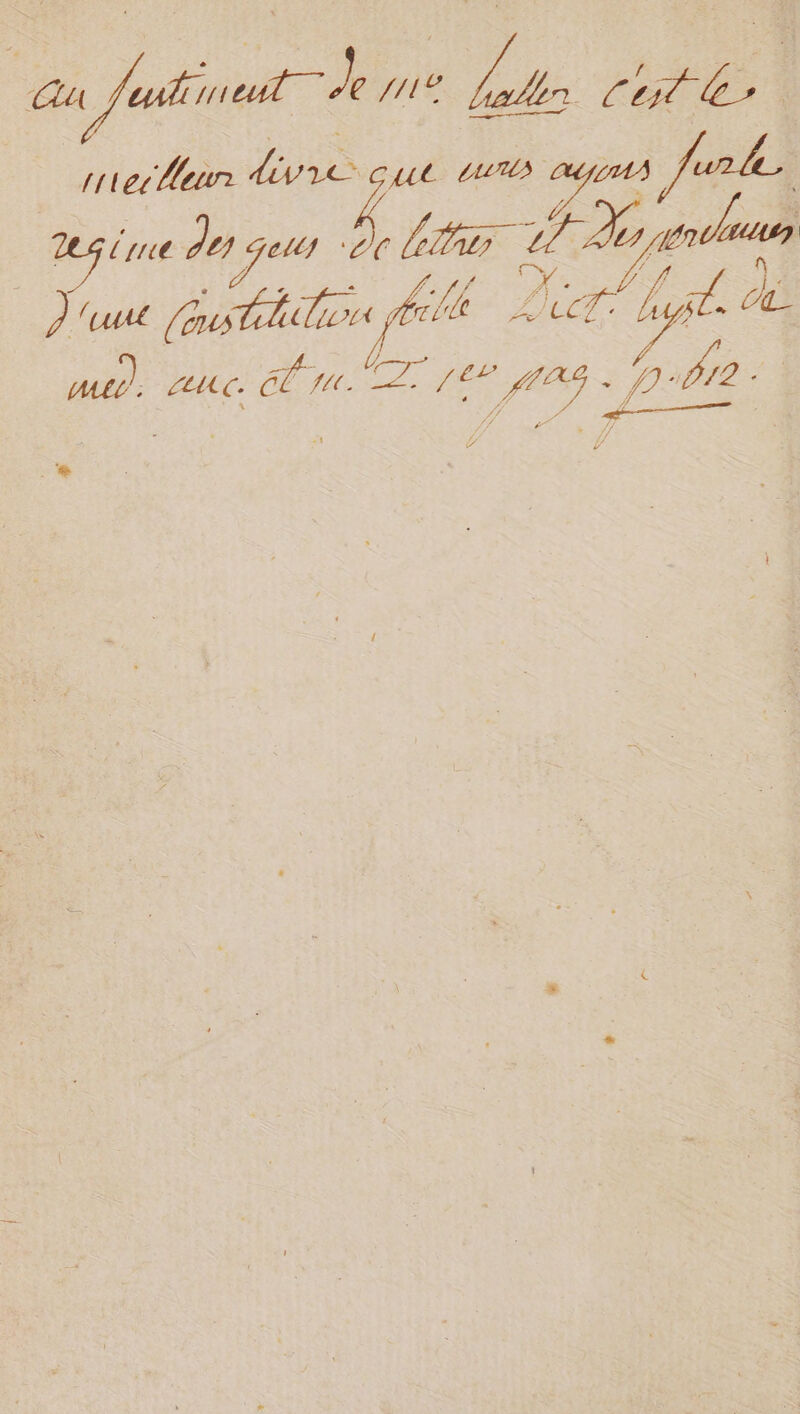 au sentiment de mr. haller c'est le
meilleur livre que nous ayons sur le
regime des gens de lettres et des personnes
d'une constitution foible Dict. hyst. de
med. anc. et m. T. 1er pag. p. 612.